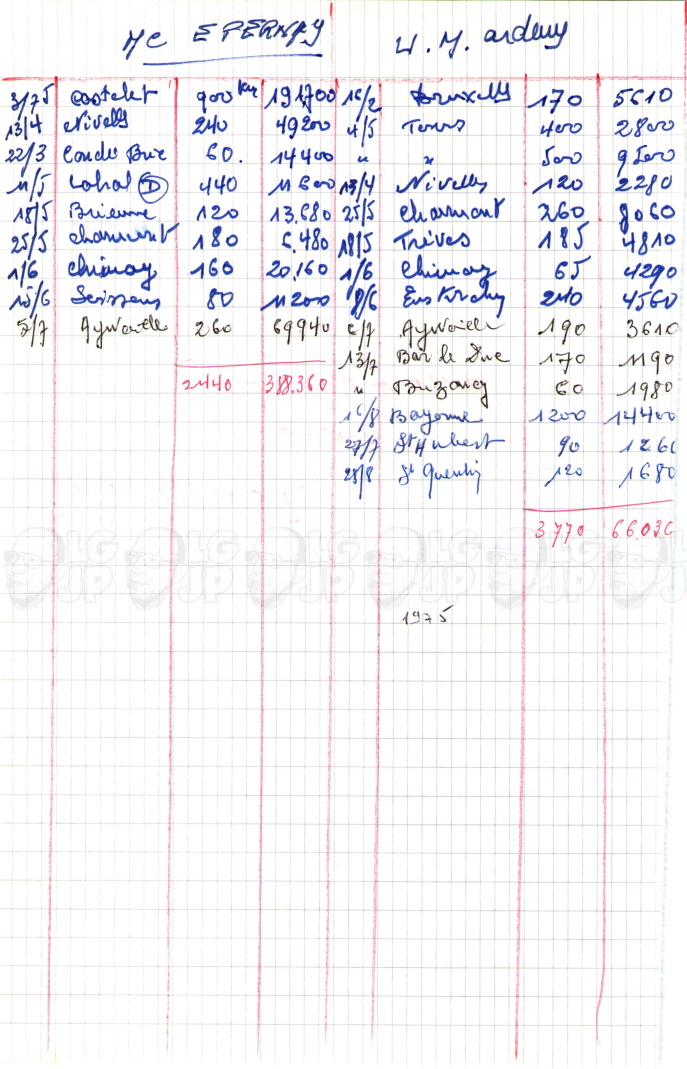 MC EPERNAY U. M. ardenn
3/75 Castelet 900 km 191700 16/2 Bruxelles 170 5610
13/4 Nivelles 240 49200 4/5 Tours 400 2800
22/3 Condé Brie 60. 14400 " " 500 9500
11/5 440 11600 13/4 Nivelles 120 2280
18/5 Brienne 120 13.680 25/5 Chaumont 260 8060
25/5 Chaumont 180 6.480 18/5 Trèves 185 4810
1/6 Chimay 160 20.160 1/6 Chimay 65 4290
15/6 Soissons 80 11200 8/6 240 4560
5/7 Aywaille 260 69940 6/7 Aywaille 190 3610
13/7 Bar le Duc 170 1190
2440 388.360 " Buzancy 60 1980
16/8 Bayonne 1200 14400
27/7 St Hubert 90 1260
28/8 St Quentin 120 1680
3770 66030
1975